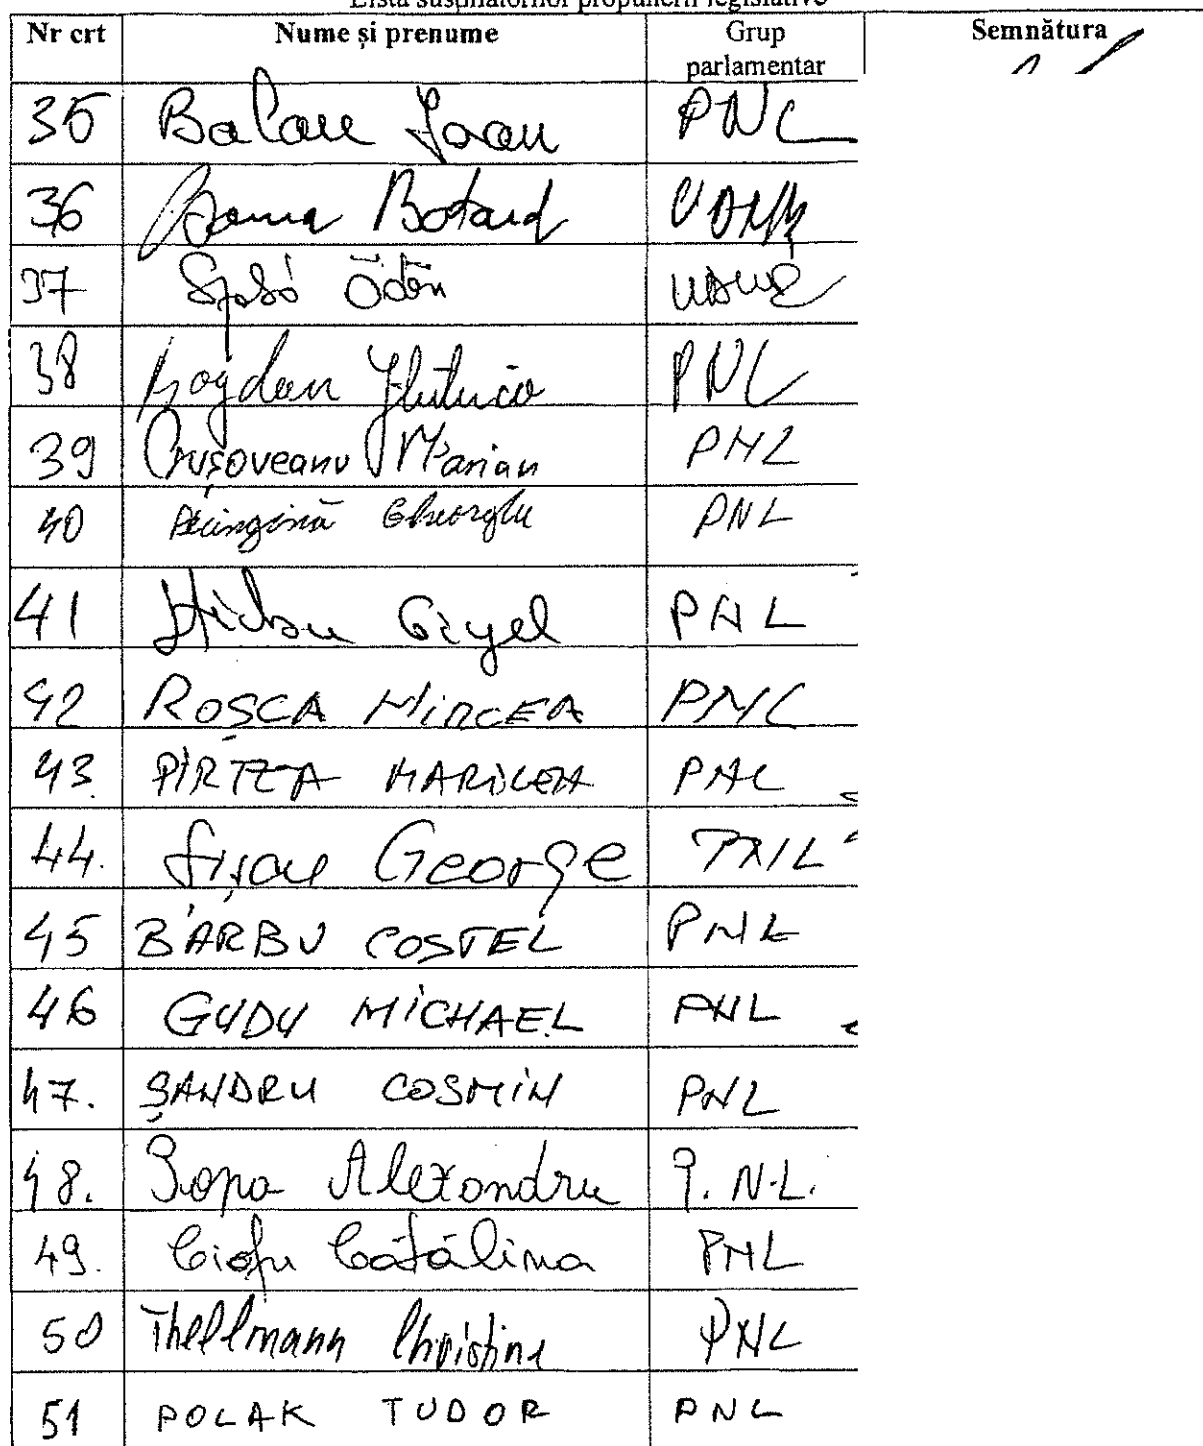 Lista susținătorilor propunerii legislative
Nr crt Nume și prenume Grup parlamentar Semnătura
35 Balan Ioan PNL
36 Botond UDMR
37 Szabó Ödön UDMR
38 Bogdan PNL
39 Crușoveanu Marian PNL
40 Pecingină Gheorghe PNL
41 Știrbu Gigel PNL
42 ROȘCA MIRCEA PNL
43. PIRTEA MARILEN PNL
44. Șișcu George PNL
45 BARBU COSTEL PNL
46 GUDU MICHAEL PNL
47. ȘANDRU COSMIN PNL
48. Popa Alexandru P.N.L.
49. Ciofu Cătălina PNL
50 Thellmann Christine PNL
51 POLAK TUDOR PNL